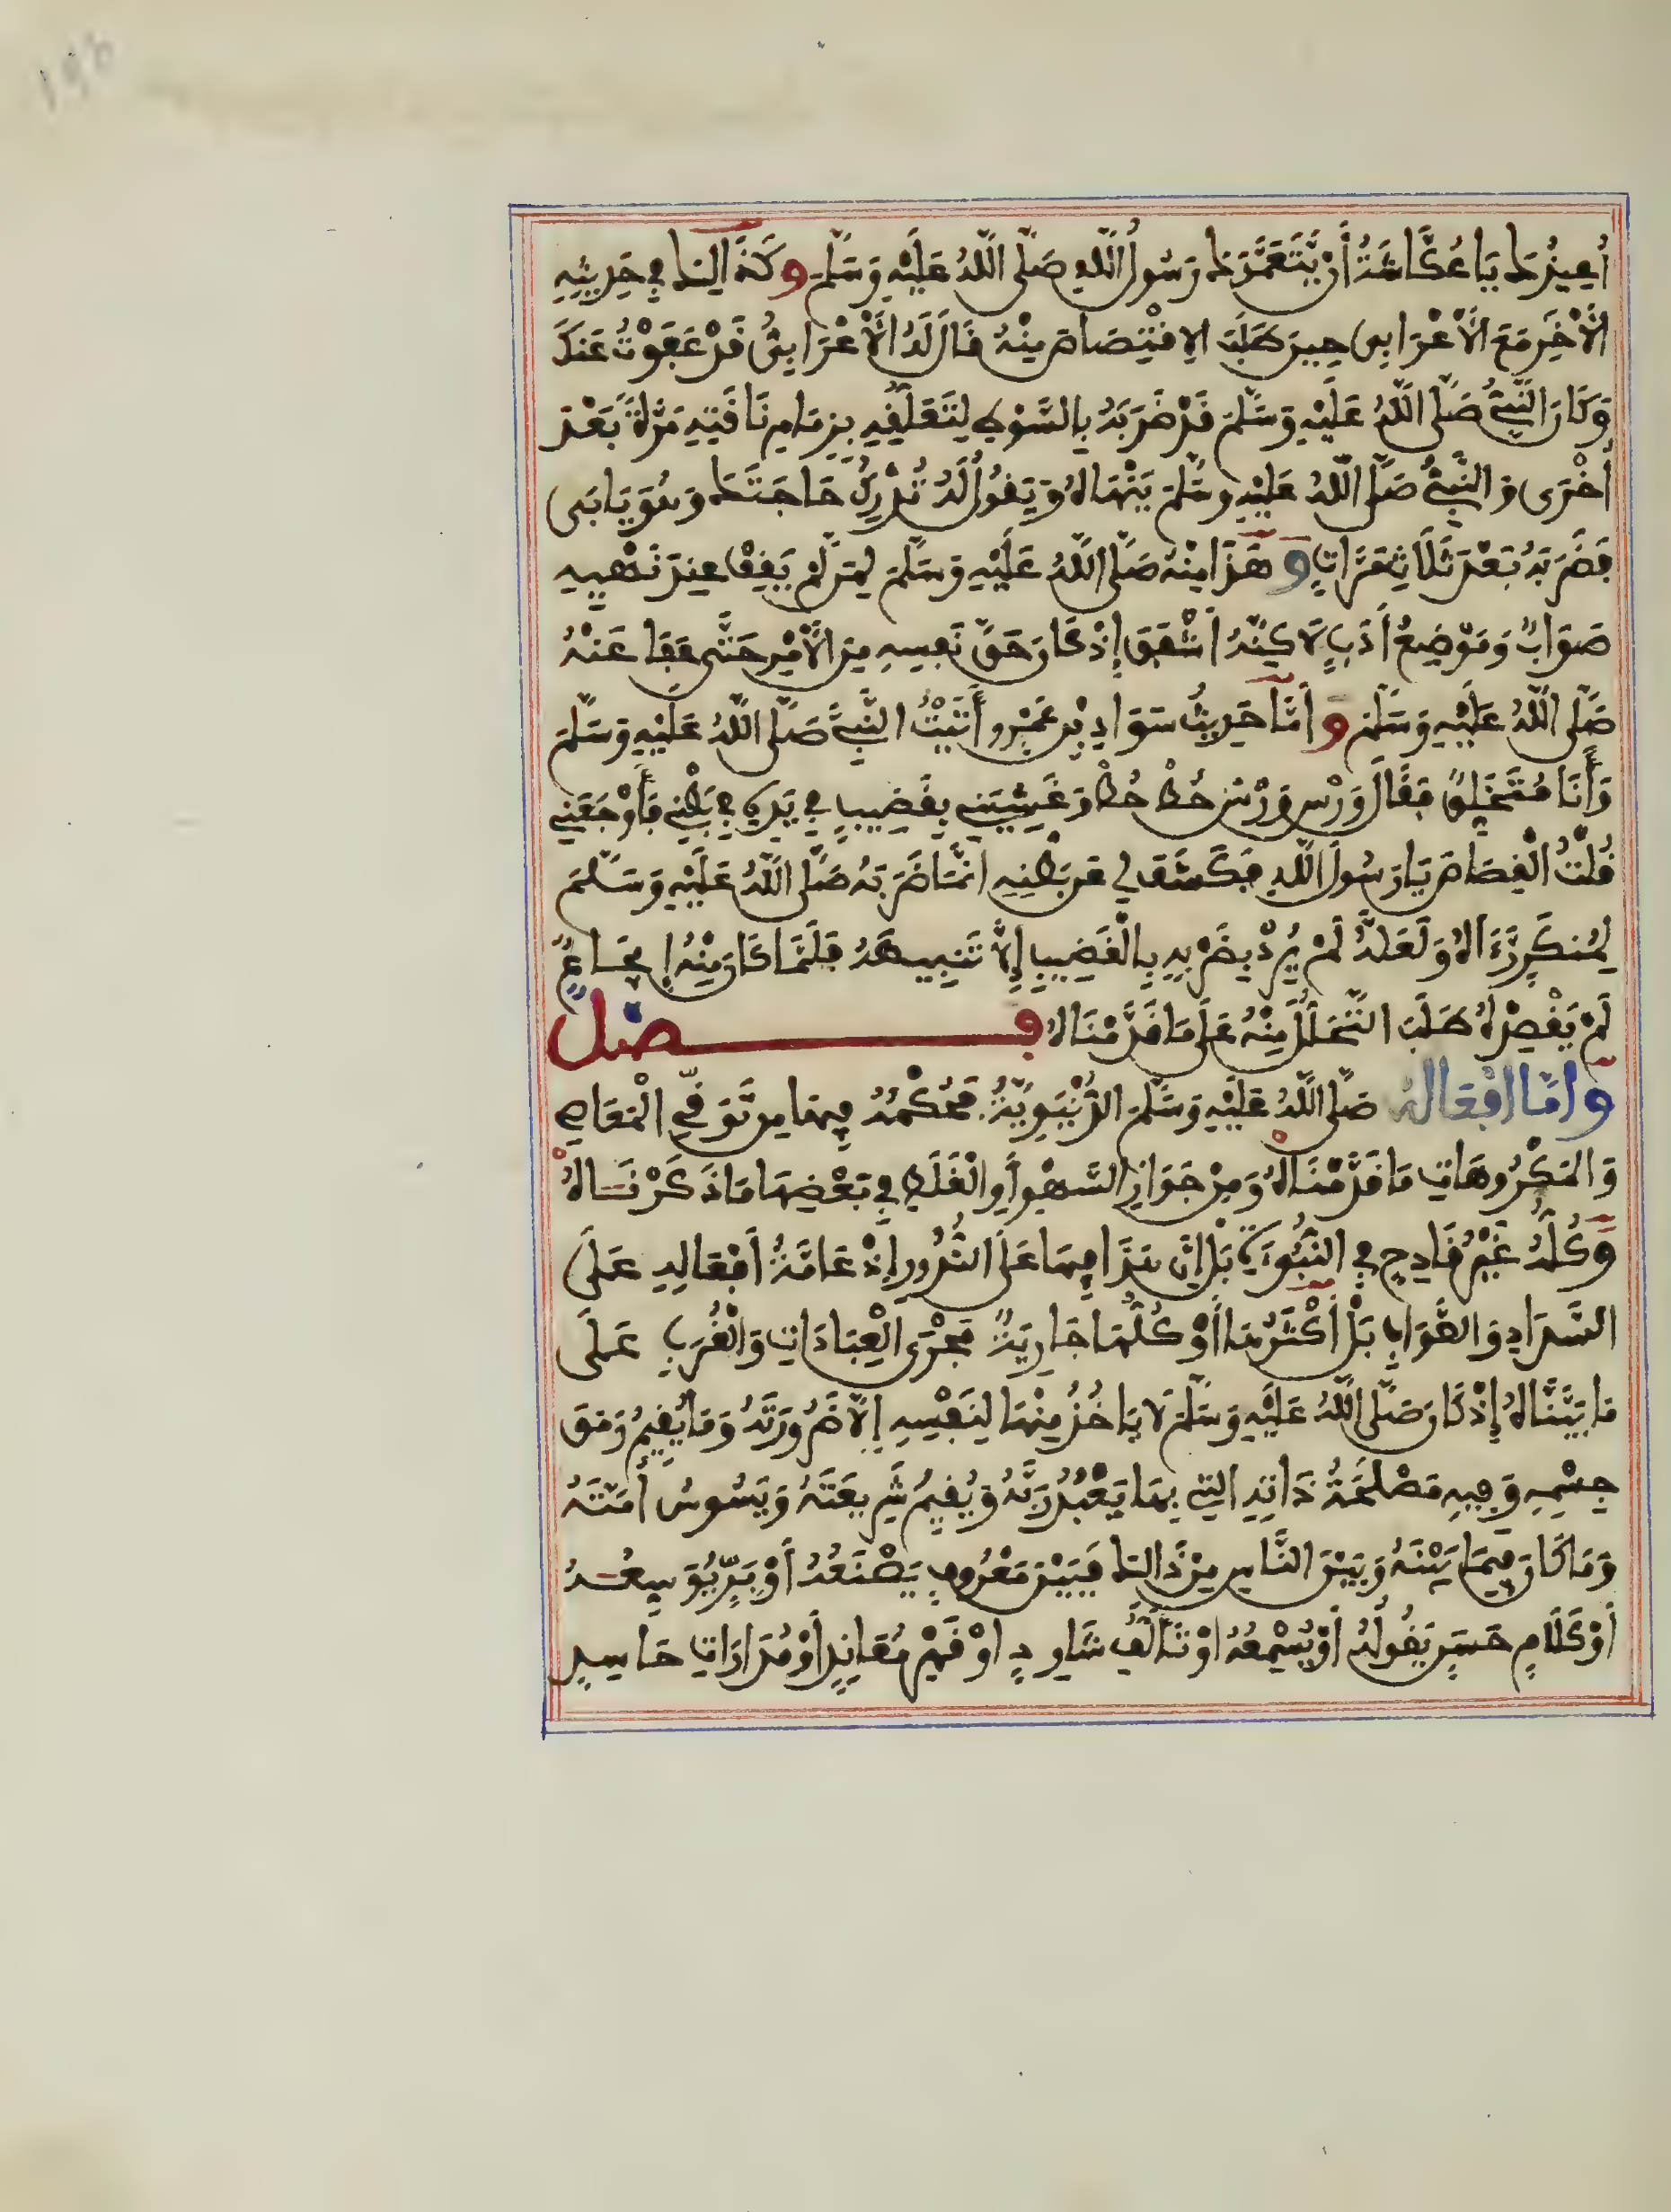 أُعِيذُكَ يَا عُكَّاشَةُ أَنْ يَتَعَمَّدَكَ رَسُولُ اللَّهِ صَلَّى اللَّهُ عَلَيْهِ وَسَلَّمَ وَكَذَالِكَ فِي حَدِيثِهِ
الْآخَرِ مَعَ الْأَعْرَابِي حِينَ طَلَبَ الِاقْتِصَاصَ مِنْهُ فَقَالَ لَهُ الْأَعْرَابِيُّ قَدْ عَفَوْتُ عَنْكَ
وَكَانَ النَّبِيُّ صَلَّى اللَّهُ عَلَيْهِ وَسَلَّمَ قَدْ ضَرَبَهُ بِالسَّوْطِ لِتَعَلُّقِهِ بِزِمَامِ نَاقَتِهِ مَرَّةً بَعْدَ
أُخْرَى وَالنَّبِيُّ صَلَّى اللَّهُ عَلَيْهِ وَسَلَّمَ يَنْهَاهُ وَيَقُولُ لَهُ تُدْرِكُ حَاجَتَكَ وَهُوَ يَابَى
فَضَرَبَهُ بَعْدَ ثَلَاثِ مَرَّاتٍ وَهَذَا مِنْهُ صَلَّى اللَّهُ عَلَيْهِ وَسَلَّمَ لِمَنْ لَمْ يَقِفْ عِنْدَ نَهْيِهِ
صَوَابٌ وَمَوْضِعُ أَدَبٍ لَكِنَّهُ أَشْفَقَ إِذْ كَانَ حَقَّ نَفْسِهِ مِنَ الْأَمْرِ حَتَّى عَفَا عَنْهُ
صَلَّى اللَّهُ عَلَيْهِ وَسَلَّمَ وَأَمَّا حَدِيثُ سَوَادِ بْنِ عَمْرٍو أَتَيْتُ النَّبِيَّ صَلَّى اللَّهُ عَلَيْهِ وَسَلَّمَ
وَأَنَا مُتَخَلِّقٌ فَقَالَ وَرْسٌ وَرْسٌ حُطْ حُطْ وَغَشِيَنِي بِقَضِيبٍ فِي يَدِهِ فِي بَطْنِي فَأَوْجَعَنِي
قُلْتُ الْقِصَاصَ يَا رَسُولَ اللَّهِ فَكَشَفَ لِي عَنْ بَطْنِهِ إِنَّمَا ضَرَبَهُ صَلَّى اللَّهُ عَلَيْهِ وَسَلَّمَ
لِمُنْكَرٍ رَءَاهُ وَلَعَلَّهُ لَمْ يُرِدْ بِضَرْبِهِ بِالْقَضِيبِ إِلَّا تَنْبِيهَهُ فَلَمَّا كَانَ مِنْهُ إِيجَاعٌ
لَمْ يَقْصِدْهُ طَلَبَ التَّحَلُّلَ مِنْهُ عَلَى مَا قَدَّمْنَاهُ فَصْلٌ
وَأَمَّا أَفْعَالُهُ صَلَّى اللَّهُ عَلَيْهِ وَسَلَّمَ الدُّنْيَوِيَّةُ فَحُكْمُهُ فِيهَا مِنْ تَوَقِّي الْمَعَاصِي
وَالْمَكْرُوهَاتِ مَا قَدَّمْنَاهُ وَمِنْ جَوَازِ السَّهْوِ أَوِ الْغَلَطِ فِي بَعْضِهَا مَا ذَكَرْنَاهُ
وَكُلُّهُ غَيْرُ قَادِحٍ فِي النُّبُوءَةِ بَلْ إِنَّ هَذَا فِيهَا عَلَى النُّدُورِ إِذْ عَامَّةُ أَفْعَالِهِ عَلَى
السَّدَادِ وَالصَّوَابِ بَلْ أَكْثَرُهَا أَوْ كُلُّهَا جَارِيَةٌ مَجْرَى الْعِبَادَاتِ وَالْقُرَبِ عَلَى
مَا بَيَّنَّاهُ إِذْ كَانَ صَلَّى اللَّهُ عَلَيْهِ وَسَلَّمَ لَا يَاخُذُ مِنْهَا لِنَفْسِهِ إِلَّا ضَرُورَتَهُ وَمَا يُقِيمُ رَمَقَ
جِسْمِهِ وَفِيهِ مَصْلَحَةُ ذَاتِهِ الَّتِي بِهَا يَعْبُدُ رَبَّهُ وَيُقِيمُ شَرِيعَتَهُ وَيَسُوسُ أُمَّتَهُ
وَمَا كَانَ فِيمَا بَيْنَهُ وَبَيْنَ النَّاسِ مِنْ ذَالِكَ فَبَيْنَ مَعْرُوفٍ يَصْنَعُهُ أَوْ بِرٍّ يُوَسِّعُهُ
أَوْ كَلَامٍ حَسَنٍ يَقُولُهُ أَوْ يُسْمِعُهُ أَوْ تَأَلُّفِ شَارِدٍ أَوْ قَهْرِ مُعَانِدٍ أَوْ مُدَارَاتِ حَاسِدٍ